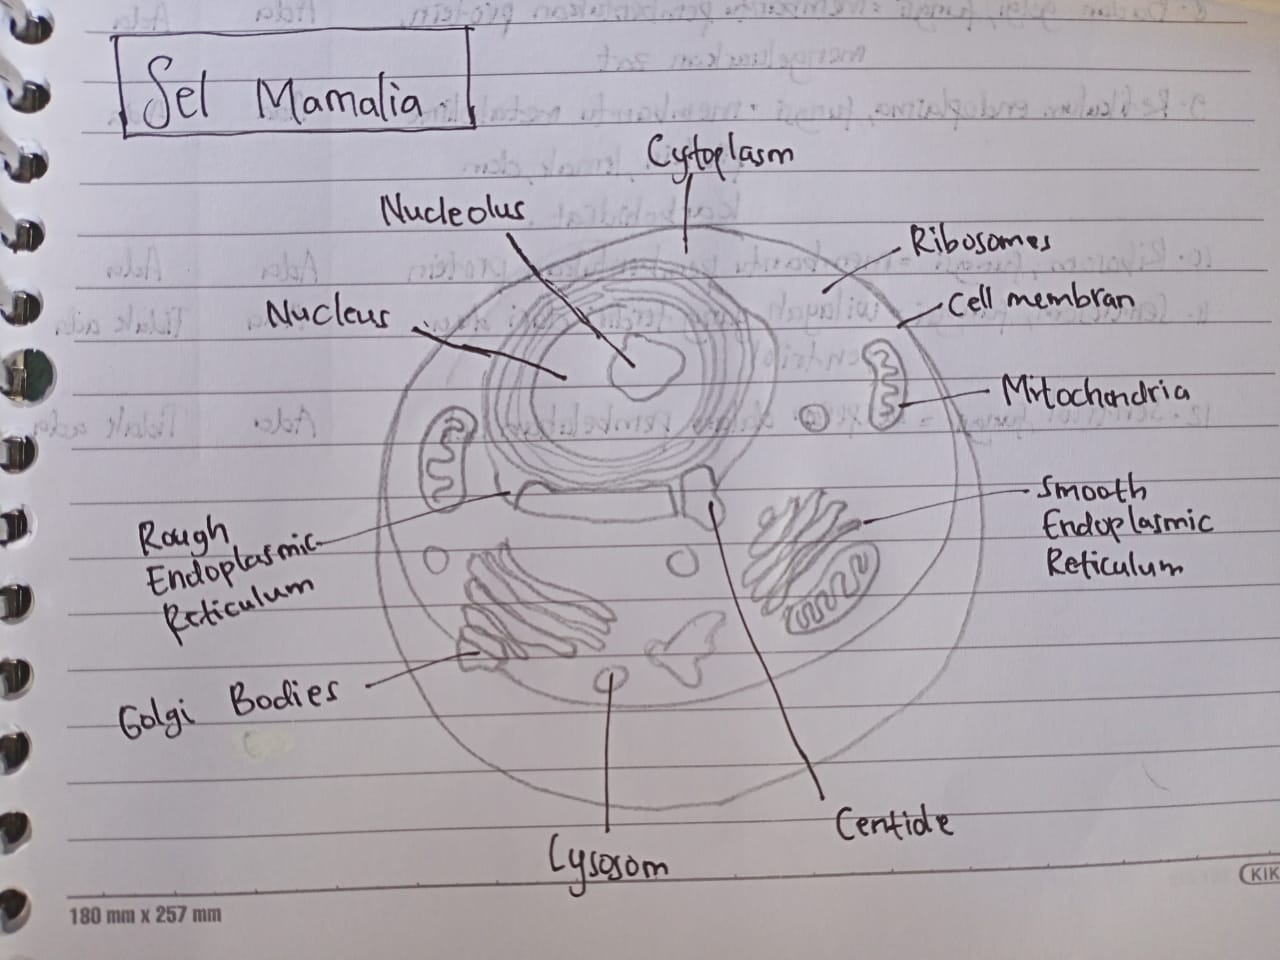 Sel Mamalia
Cytoplasm
Nucleolus
Ribosomes
Nucleus
Cell membran
Mitochondria
Smooth
Endoplasmic
Reticulum
Rough
Endoplasmic
Reticulum
Golgi Bodies
Centiole
Lysosom
180 mm x 257 mm
KIK